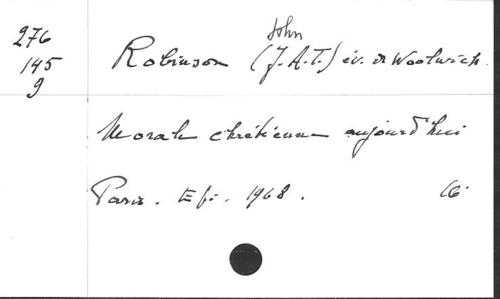 276
145
9
John
Robinson (J.A.T.) év. de Woolwich.
Morale chrétienne aujourd'hui
Paris. Epi. 1968. 16°